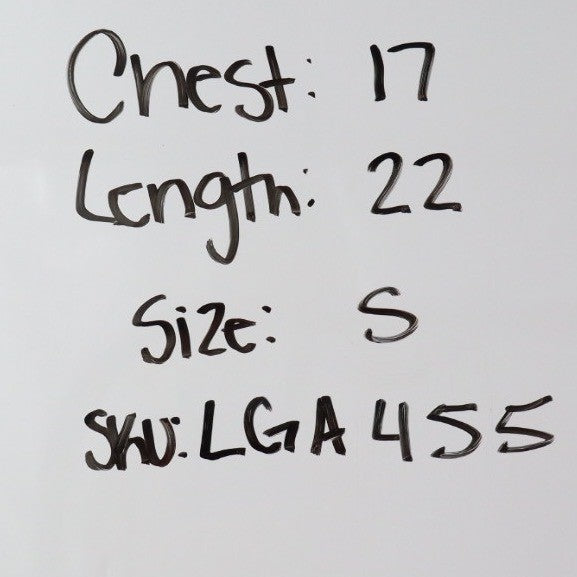 Chest: 17
Length: 22
Size: S
SKU: LGA455